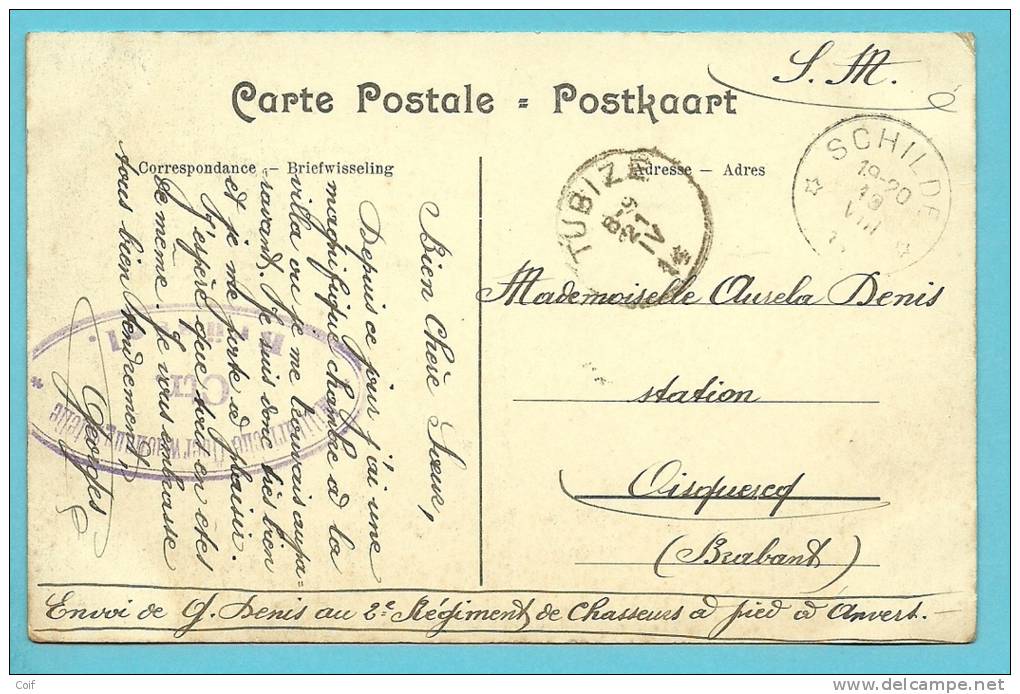 S. M.
Carte Postale = Postkaart
Correspondance — Briefwisseling
Adresse — Adres
SCHILDE
19-20
VIII
TUBIZE
IV
Bien Chère Sœur,
Depuis ce jour j'ai une
magnifique chambre à la
villa où je me trouvais aupa=
ravant. Je suis donc très bien
et je me porte à plaisir.
J'espère que tout en êtes
de même. Je vous embrasse
tous bien tendrement,
Georges
Militärische
Mademoiselle Aurela Denis
station
Oisquercq
(Brabant)
Envoi de G. Denis au 2e Régiment de Chasseurs à pied à Anvers.
Coif
delcampe.net